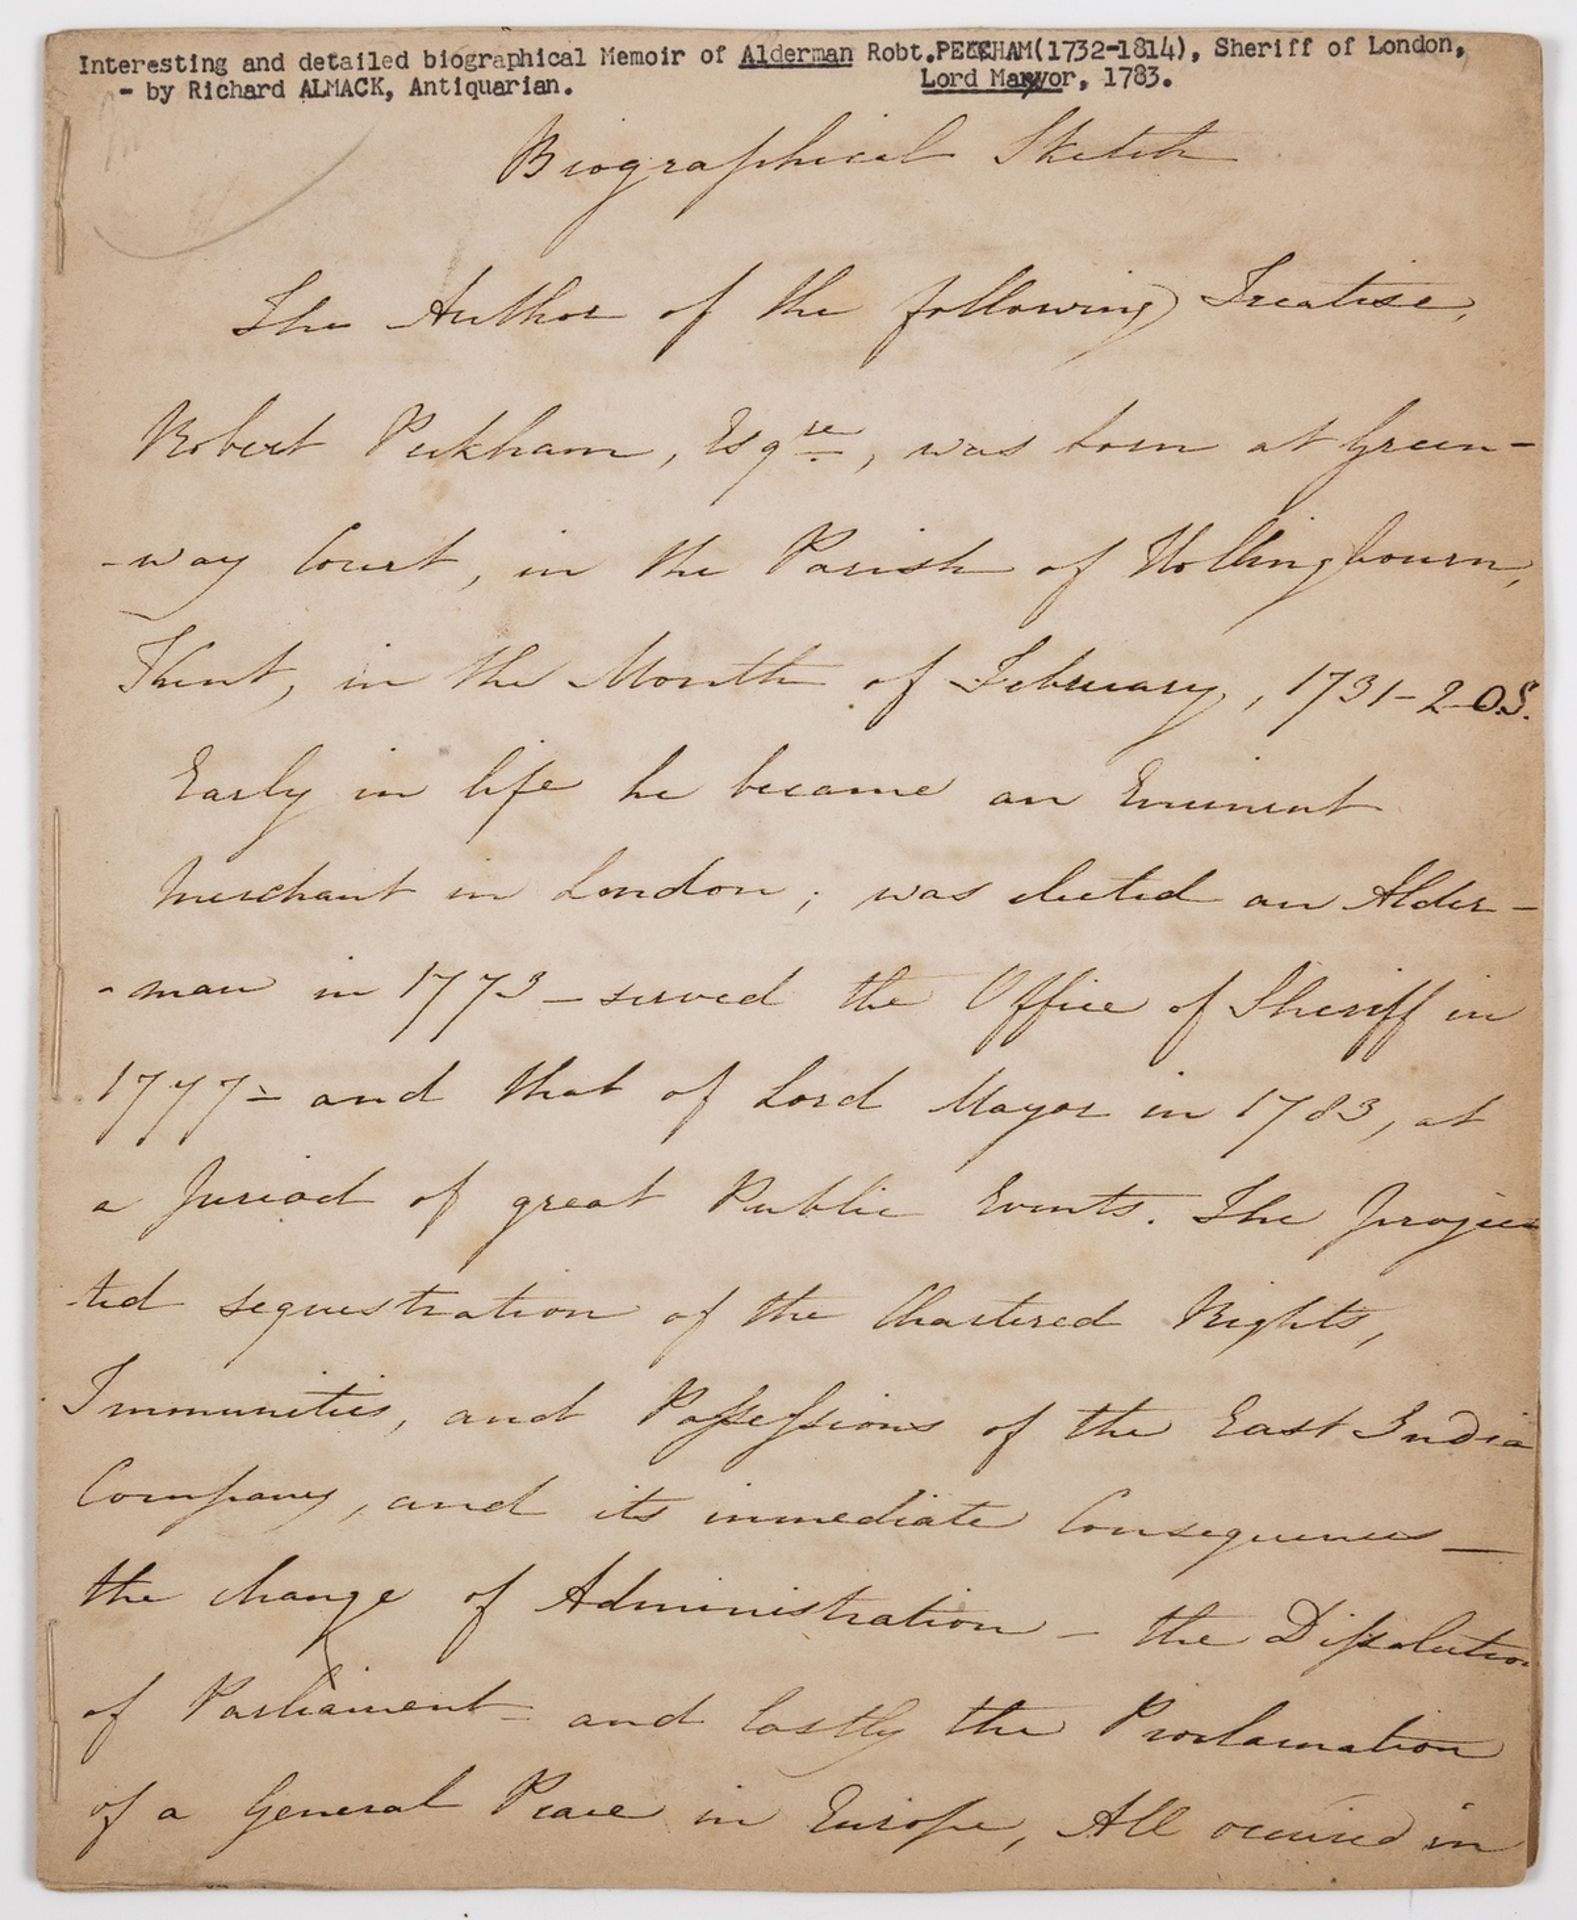 Interesting and detailed biographical Memoir of Alderman Robt. PECKHAM (1732-1814), Sheriff of London,
- by Richard ALMACK, Antiquarian. Lord Mayor, 1783.
Biographical Sketch
The Author of the following Treatise,
Robert Peckham, Esqre, was born at Green-
-way Court, in the Parish of Hollingbourn,
Kent, in the Month of February, 1731-2 O.S.
Early in life he became an Eminent
Merchant in London; was elected an Alder-
-man in 1773 - served the Office of Sheriff in
1777 - and that of Lord Mayor in 1783, at
a period of great Public Events. The projec
-ted sequestration of the Chartered Rights,
Immunities, and Possessions of the East India
Company, and its immediate Consequences -
the change of Administration - the Dissolution
of Parliament - and lastly the Proclamation
of a General Peace in Europe, All occured in